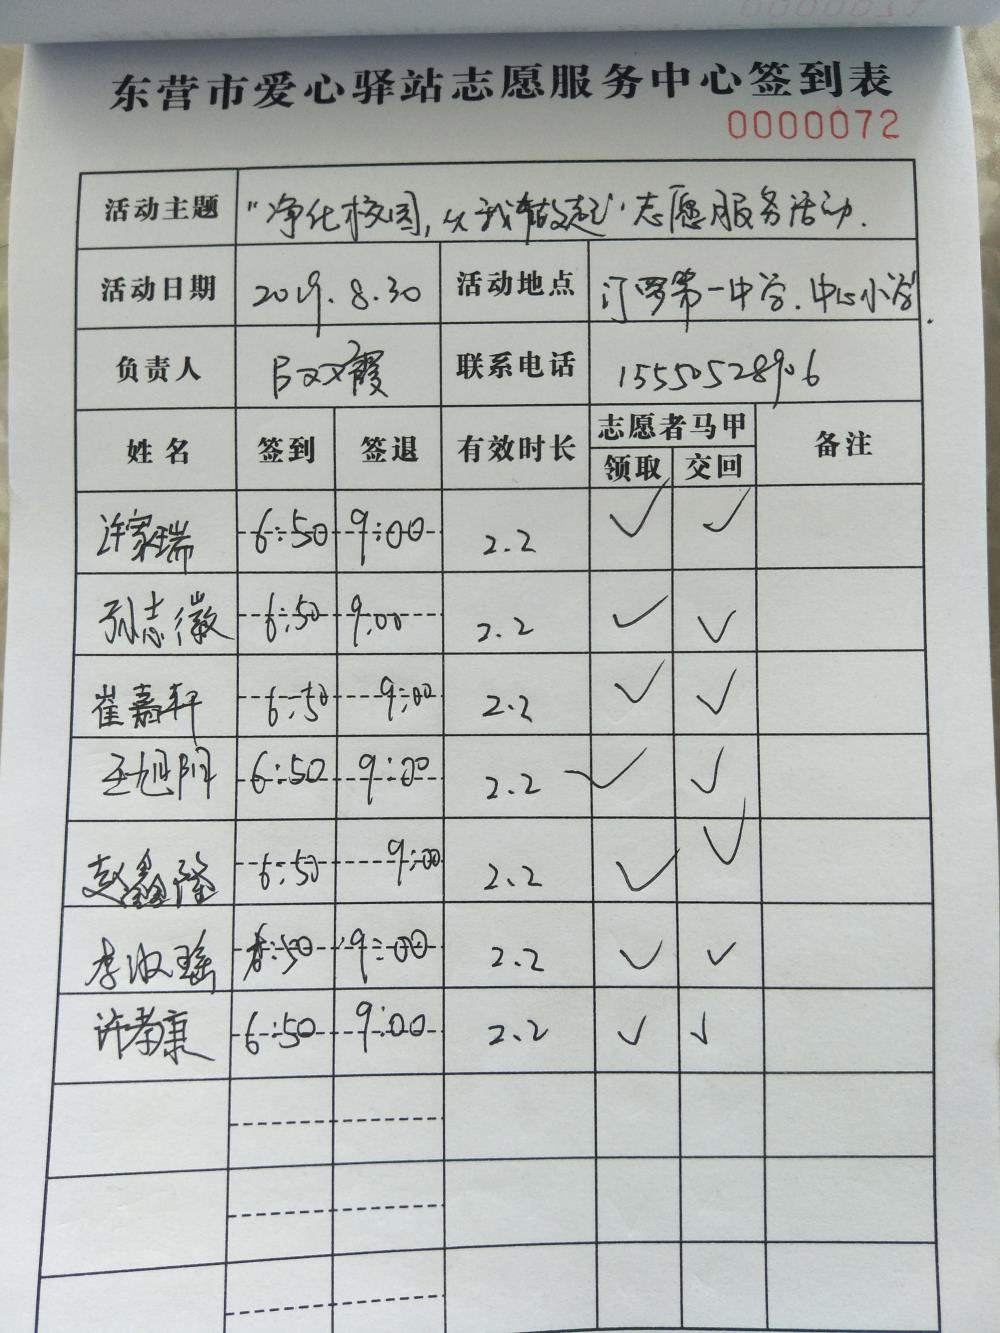 东营市爱心驿站志愿服务中心签到表
0000072
活动主题 "净化校园,从我做起"志愿服务活动.
活动日期 2019.8.30 活动地点 汀罗第一中学.中心小学.
负责人 双霞 联系电话 15550528906
姓名 签到 签退 有效时长 志愿者马甲 备注
领取 交回
许家瑞 6:50 9:00 2.2 ✓ ✓
孙志徽 6:50 9:00 2.2 ✓ ✓
崔嘉轩 6:50 9:00 2.2 ✓ ✓
王旭阳 6:50 9:00 2.2 ✓ ✓
赵鑫隆 6:50 9:00 2.2 ✓ ✓
李淑瑶 6:50 9:00 2.2 ✓ ✓
许孝康 6:50 9:00 2.2 ✓ ✓